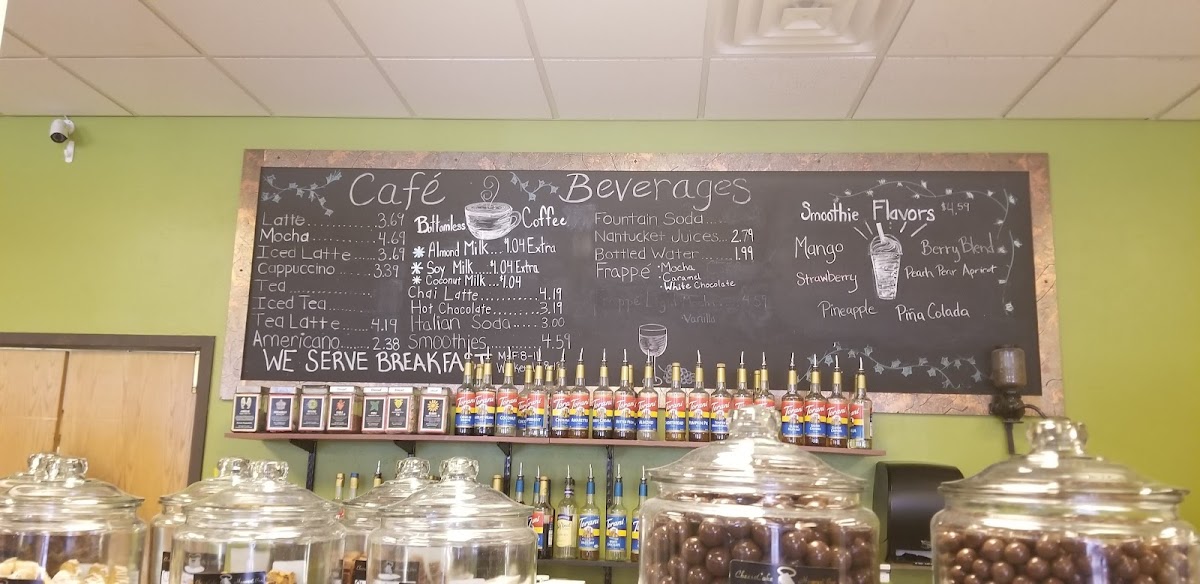 Café
Beverages
Latte...........3.69
Mocha..........4.69
Iced Latte......3.69
Cappuccino......3.39
Tea....................
Iced Tea............
Tea Latte......4.19
Americano......2.38
WE SERVE BREAKFAST
Bottomless Coffee
* Almond Milk...$1.04 Extra
* Soy Milk.....$1.04 Extra
* Coconut Milk...$1.04
Chai Latte...........4.19
Hot Chocolate.........3.19
Italian Soda.....3.00
Smoothies.........4.59
Fountain Soda....
Nantucket Juices...2.79
Bottled Water........1.99
Frappé
·Mocha
·Caramel
·White Chocolate
4.59
Vanilla
Smoothie Flavors $4.59
Mango
Berry Blend
Strawberry
Peach Pear Apricot
Pineapple
Piña Colada
Torani